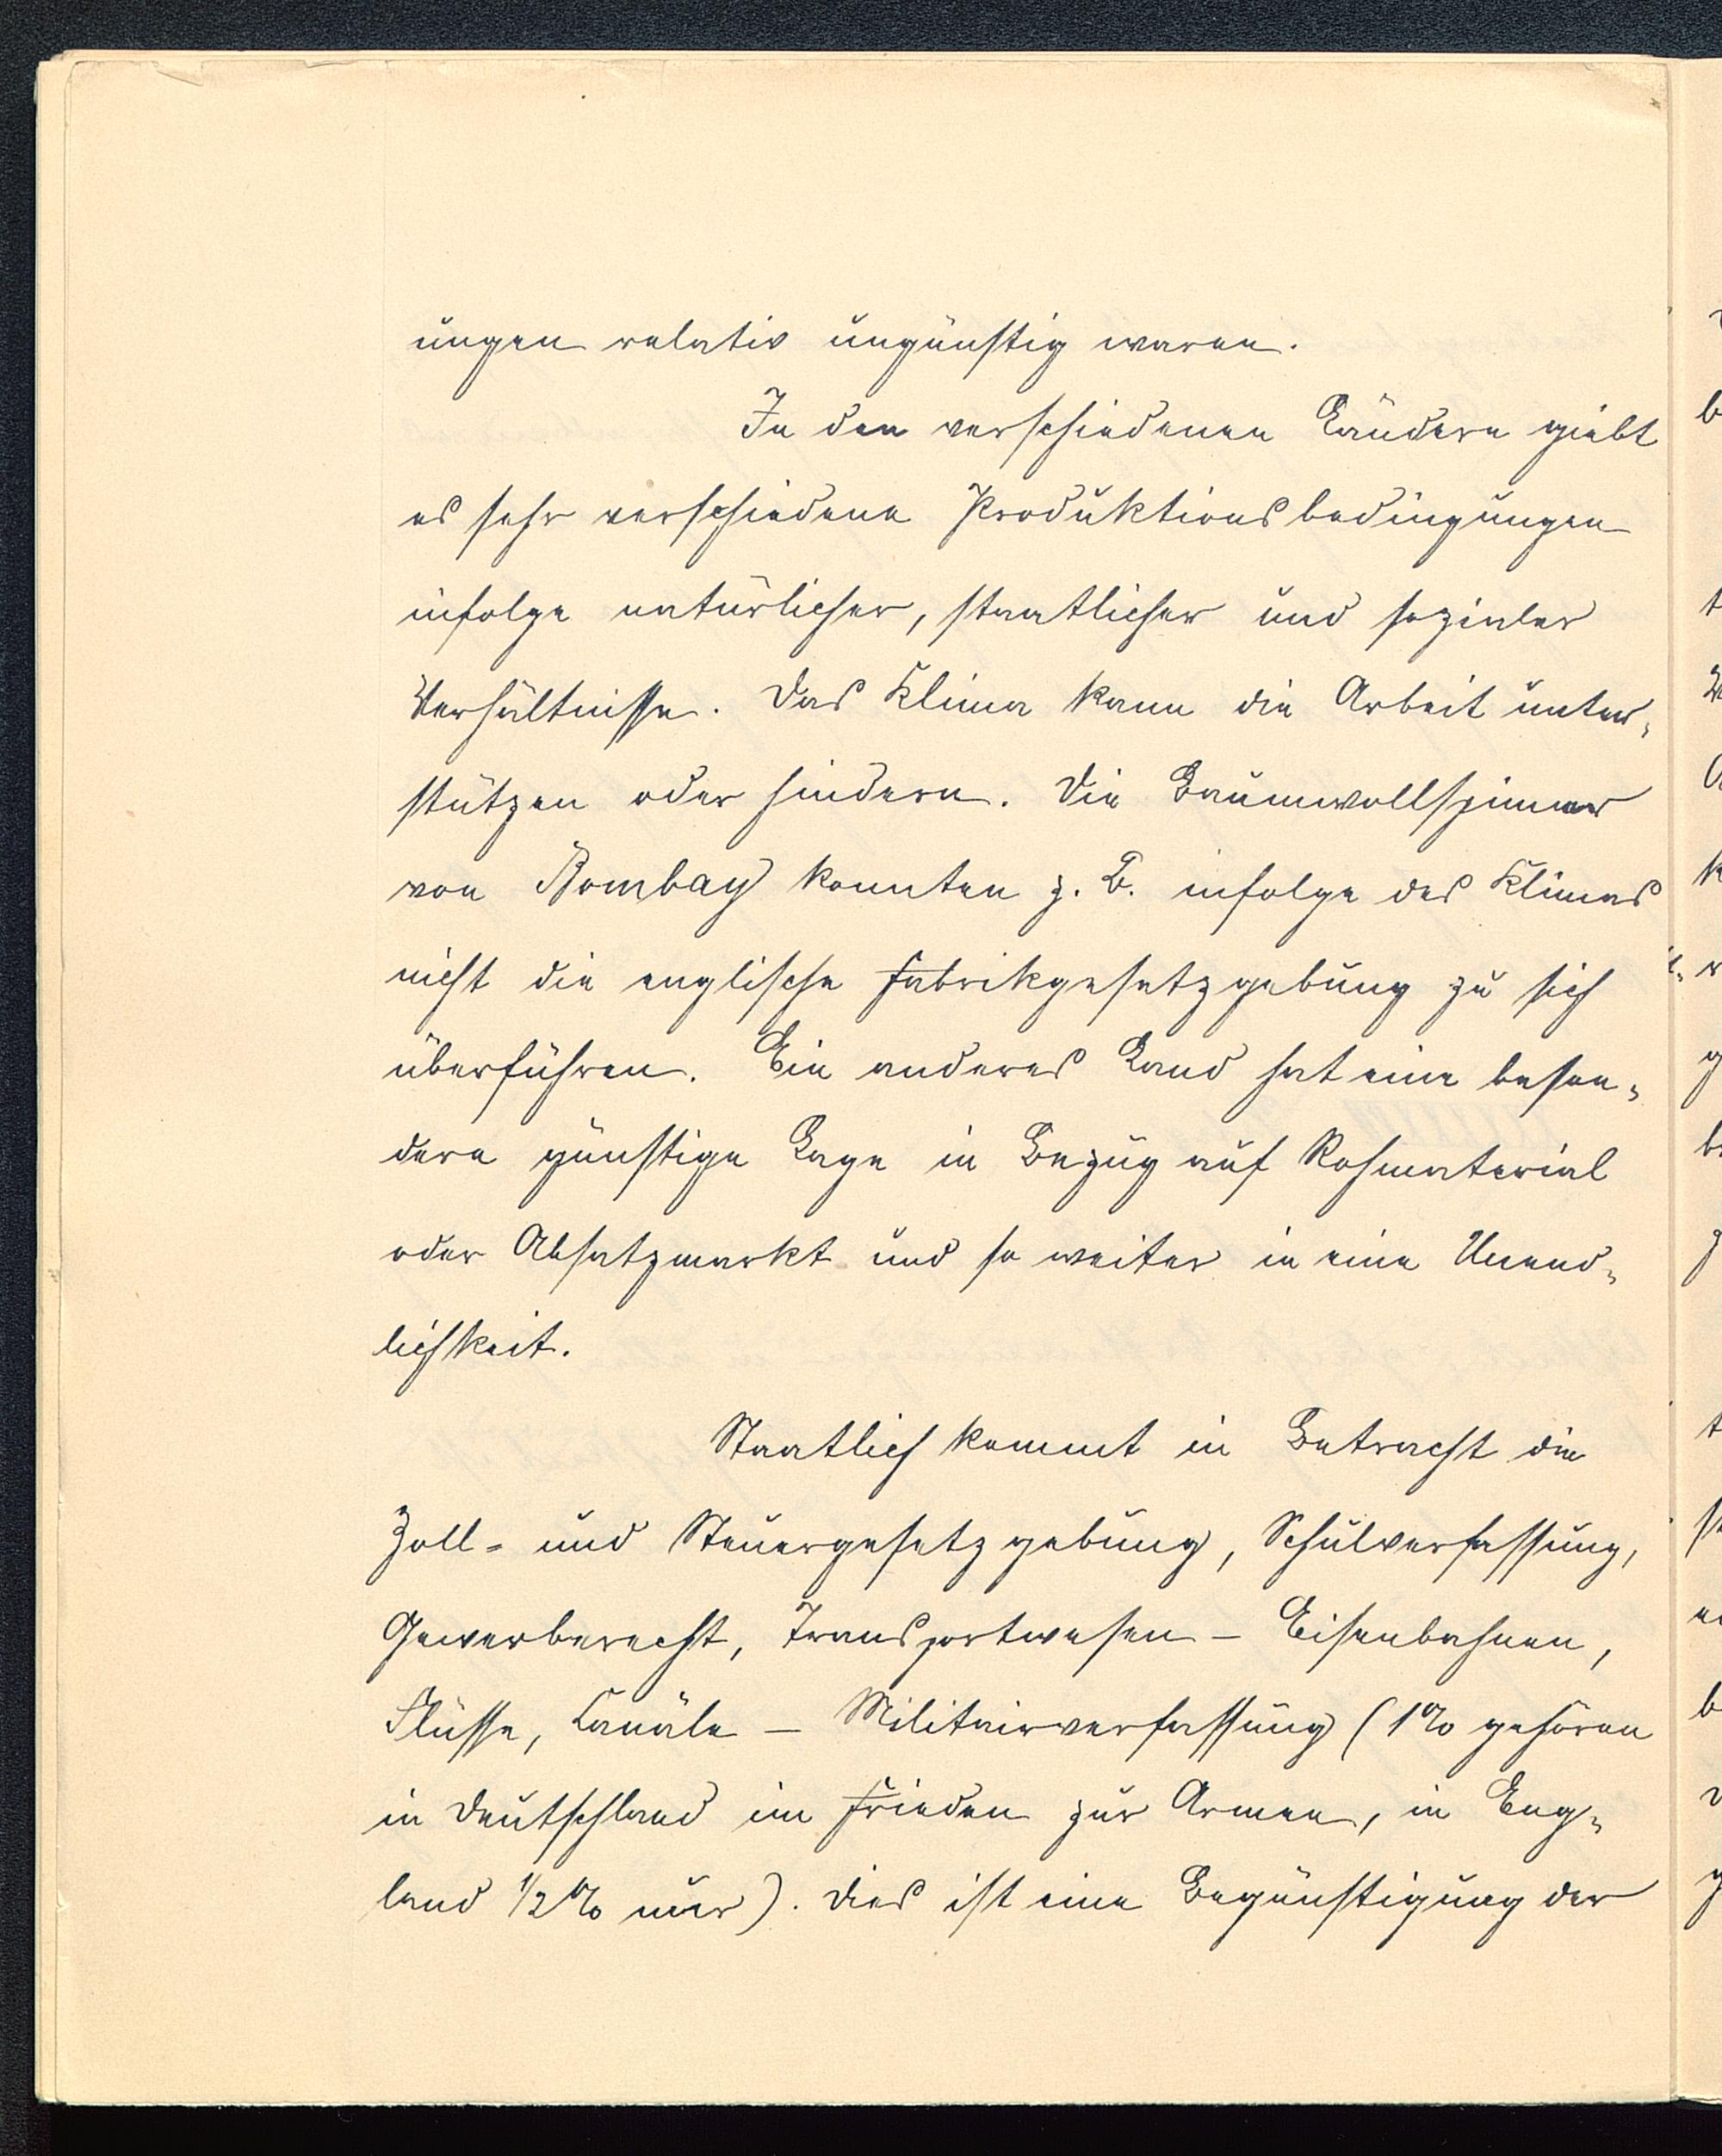 ungen relativ ungünstig waren.
In den verschiedenen Ländern giebt
es sehr verschiedene Produktionsbedingungen
infolge natürlicher, staatlicher und sozialer
Verhältnisse. Das Klima kann die Arbeit unter-
stützen oder hindern. Die Baumwollspinner
von Bombay konnten z. B. infolge des Klimas
nicht die englische Fabrikgesetzgebung zu sich
überführen. Ein anderes Land hat eine beson-
dere günstige Lage in Bezug auf Rohmaterial
oder Absatzmarkt und so weiter in eine Unend-
lichkeit.
Staatlich kommt in Betracht die
Zoll- und Steuergesetzgebung, Schulverfassung,
Gewerberecht, Transportwesen – Eisenbahnen,
Flüsse, Canäle – Militairverfassung (1% gehören
in Deutschland im Frieden zur Armee, in Eng-
land 1/2% nur). Dies ist eine Begünstigung der